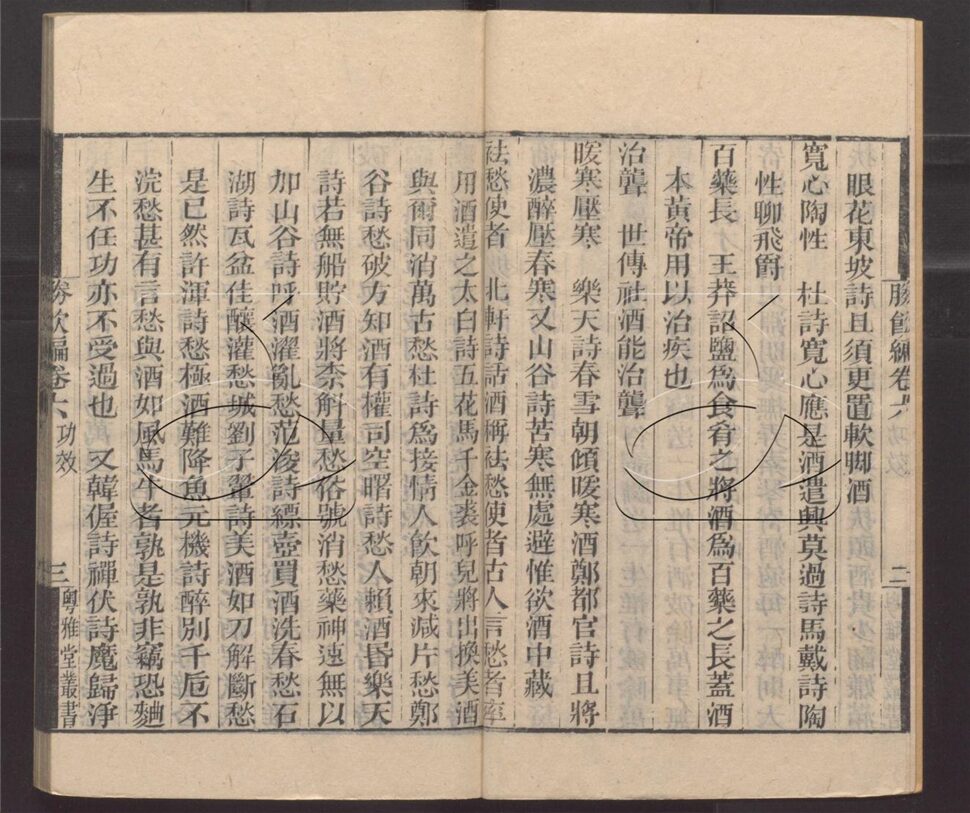 勝飲編卷六 功效 二
眼花東坡詩且須更置軟脚酒
寬心陶性 杜詩寬心應是酒遣興莫過詩馬戴詩陶
性聊飛爵
百藥長 王莽詔鹽爲食肴之將酒爲百藥之長蓋酒
本黃帝用以治疾也
治聾 世傳社酒能治聾
暖寒壓寒 樂天詩春雪朝傾暖寒酒鄭都官詩且將
濃醉壓春寒又山谷詩苦寒無處避惟欲酒中藏
祛愁使者 北軒詩話酒稱祛愁使者古人言愁者率
用酒遣之太白詩五花馬千金裘呼兒將出換美酒
與爾同消萬古愁杜詩爲接情人飲朝來減片愁鄭
谷詩愁破方知酒有權司空曙詩愁人賴酒昏樂天
詩若無船貯酒將柰斛量愁俗號消愁藥神速無以
加山谷詩呼酒濯亂愁范浚詩縹壺買酒洗春愁石
湖詩瓦盆佳釀灌愁城劉子翬詩美酒如刀解斷愁
是已然許渾詩愁極酒難降魚元機詩醉別千卮不
浣愁甚有言愁與酒如風馬牛者孰是孰非竊恐麯
生不任功亦不受過也 又韓偓詩禪伏詩魔歸淨
勝飲編卷六 功效 三 粵雅堂叢書